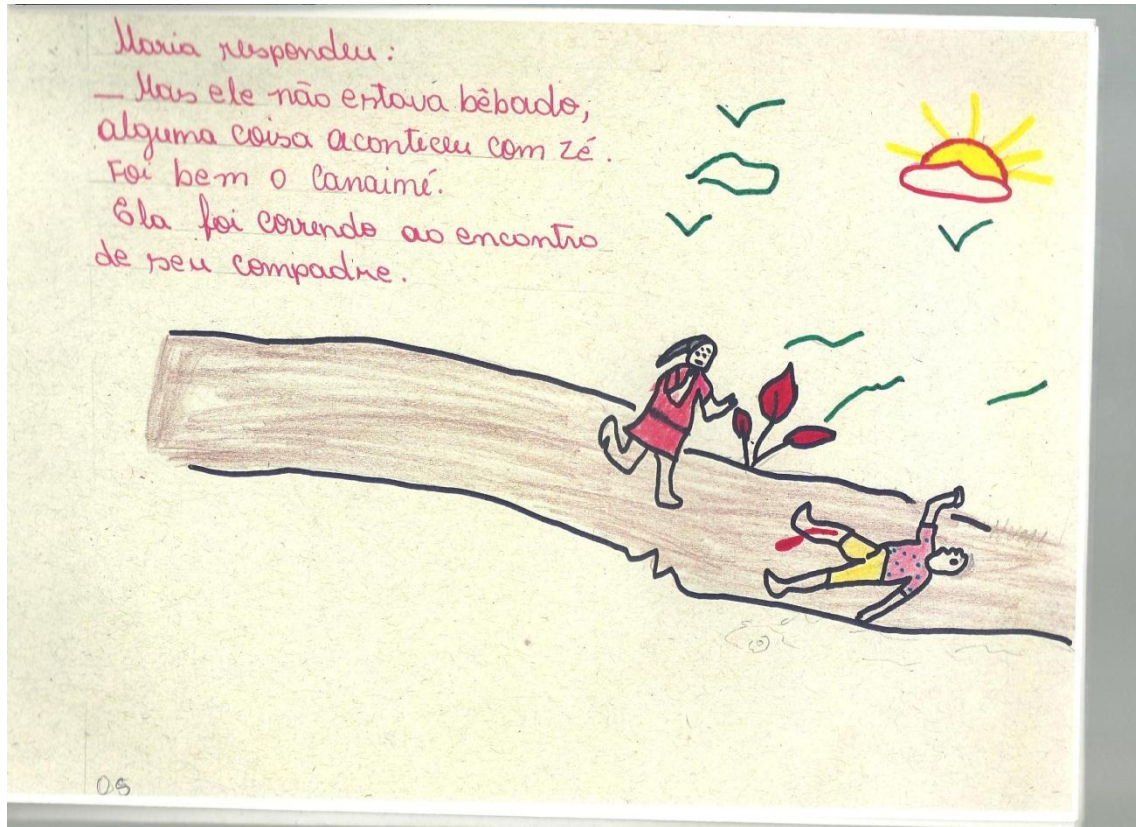 Maria respondeu:
_ Mas ele não estava bêbado,
alguma coisa aconteceu com zé.
Foi bem o Canaimé.
Ela foi correndo ao encontro
de seu compadre.
08